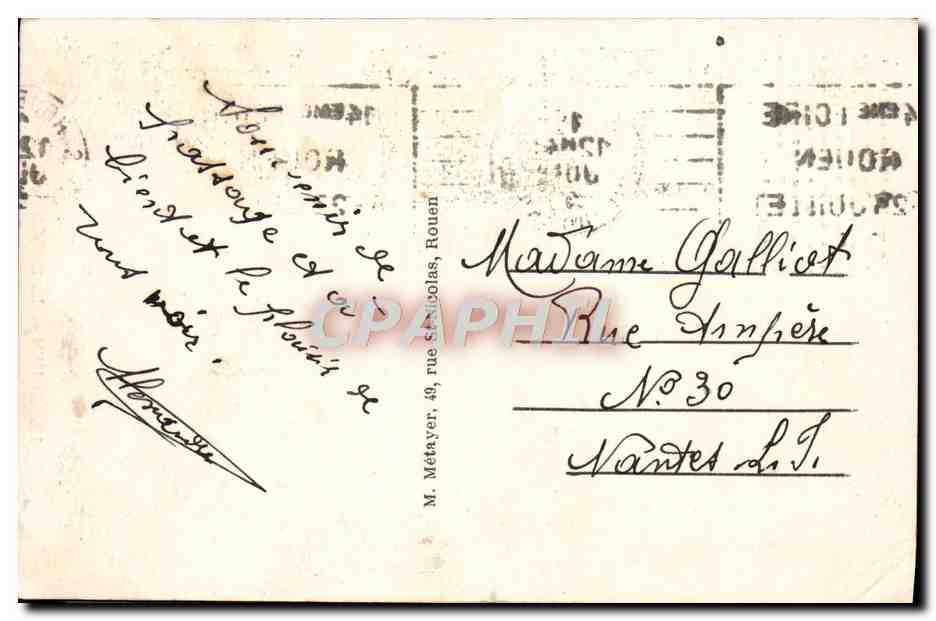 Souvenir de
passage et à
bientôt le plaisir de
vous voir.
M. Métayer, 49, rue St-Nicolas, Rouen
Madame Galliot
Rue Ampère
No 30
Nantes L. I.
CPAPHIL
4EME FOIRE
ROUEN
JUILLET